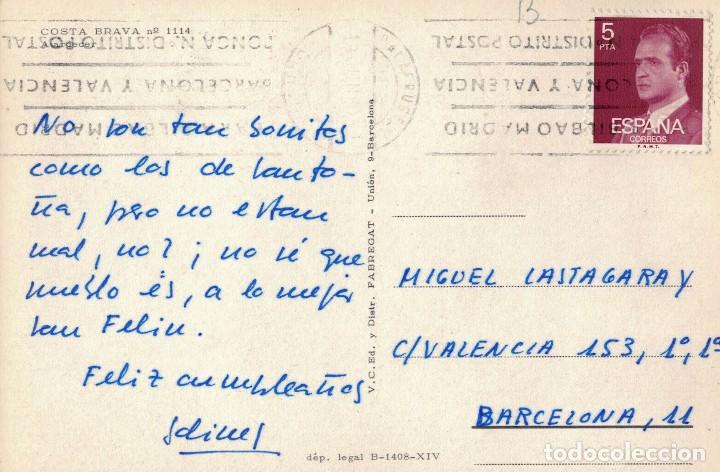 COSTA BRAVA nº 1114
Atardecer
PONGA N.º DISTRITO POSTAL
BARCELONA Y VALENCIA
BILBAO MADRID
5
PTA
ESPAÑA
CORREOS
F.N.M.T.
No son tan bonitos
como los de Santo-
ña, pero no estan
mal, no? ¡ no sé que
pueblo és, a lo mejor
san Feliu.
Feliz cumpleaños
V. C. Ed. y Distr. FABREGAT - Unión, 9-Barcelona
MIGUEL LASTAGARAY
C/VALENCIA 153, 1º, 1ª
BARCELONA, 11
dép. legal B-1408-XIV
todocoleccion